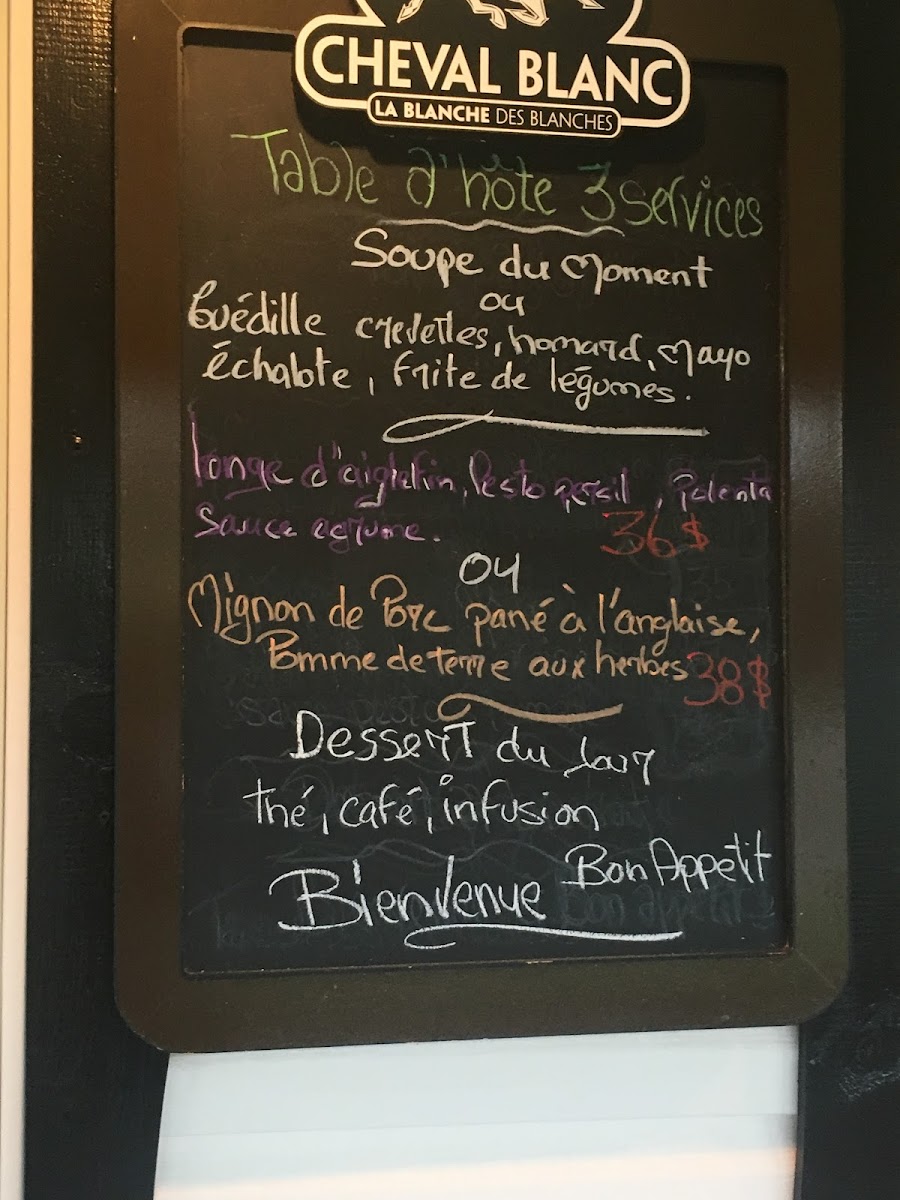 CHEVAL BLANC
LA BLANCHE DES BLANCHES
Table d'hôte 3 services
Soupe du Moment
ou
Guédille crevettes, homard, Mayo
échalote, frite de légumes.
longe d'aiglefin, Pesto persil, Polenta
Sauce agrume. 36$
ou
Mignon de Porc pané à l'anglaise,
Pomme de terre aux herbes 38$
Dessert du Jour
thé, café, infusion
Bon Appetit
Bienvenue